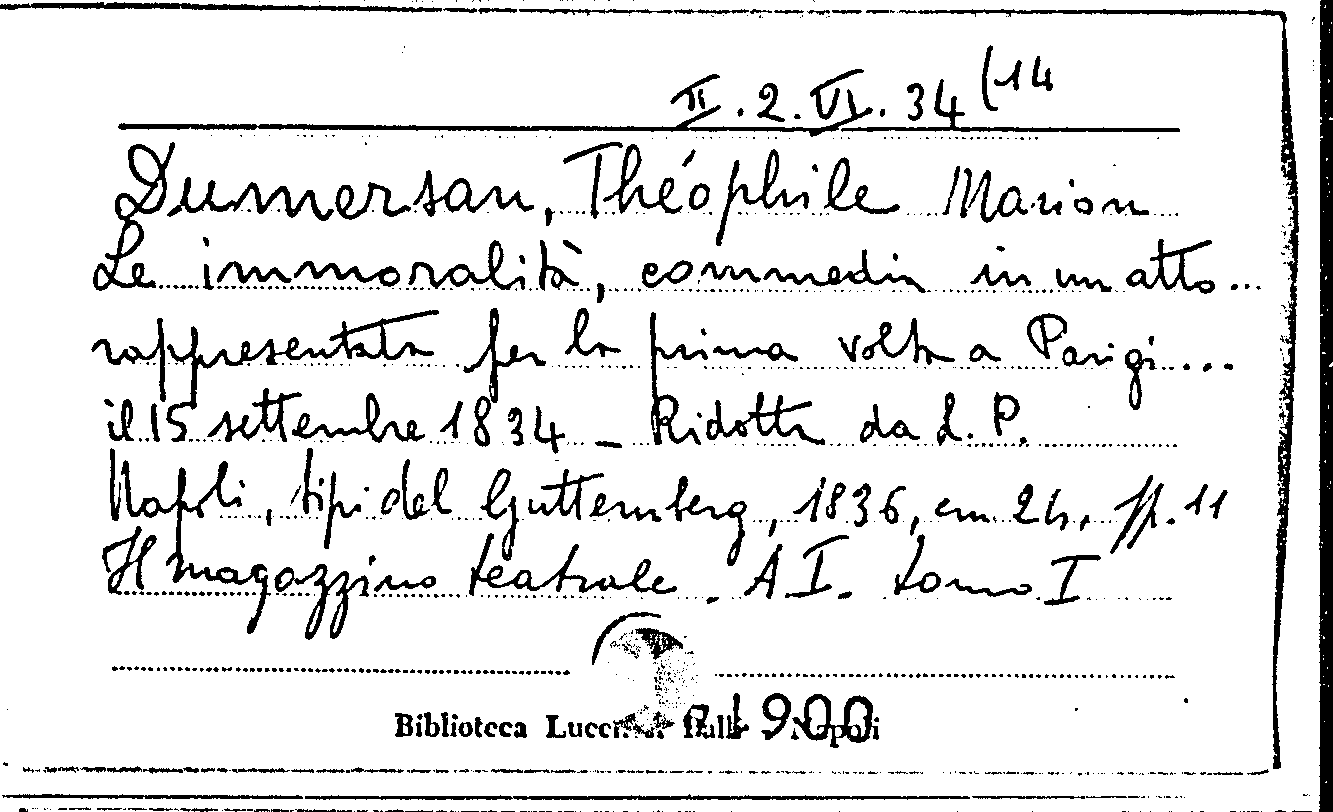 II. 2. VI. 34 (14
Dumersan, Théophile Marion
Le immoralità, commedia in un atto...
rappresentata per la prima volta a Parigi....
il 15 settembre 1834 - Ridotta da L. P.
Napoli, tipi del Guttemberg, 1836, cm 24, pp. 11
Il magazzino teatrale. A I. tomo I
Biblioteca Lucchesi Palli Napoli
1900